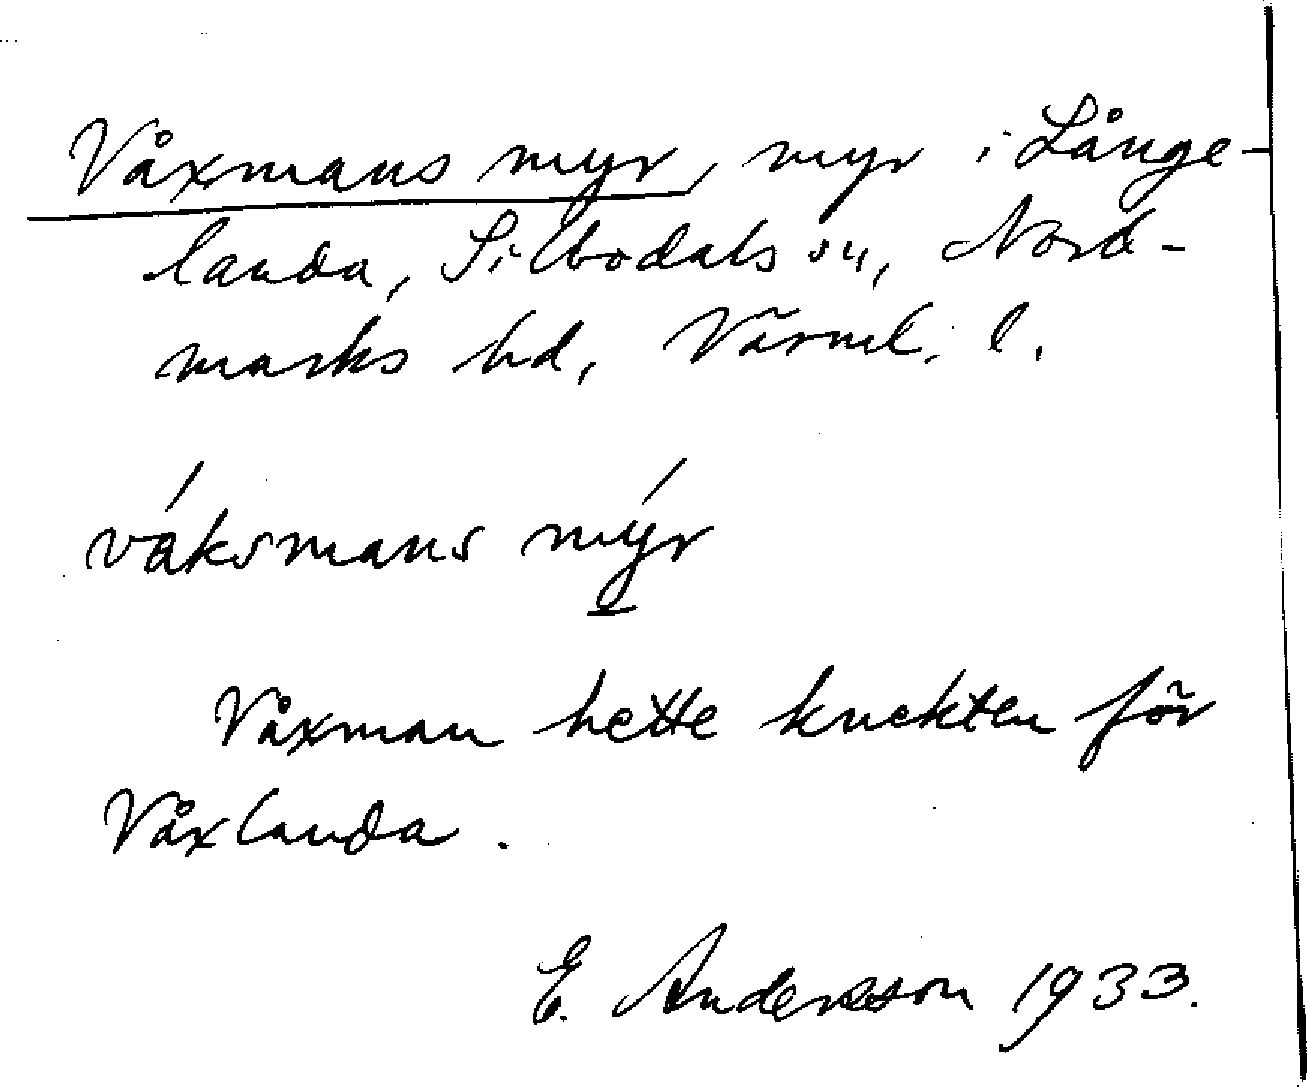 Våxmans myr, myr i Långe-
landa, Silbodals sn, Nord-
marks hd, Värml. l.
våksmans mýr
Våxman hette knekten för
Våxlanda.
E. Andersson 1933.